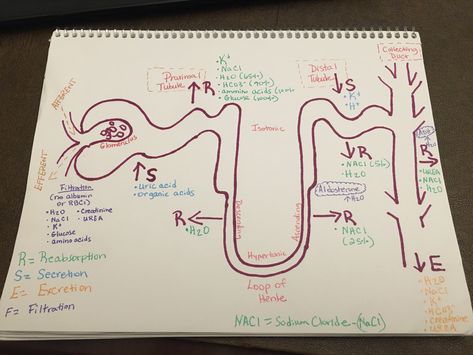 Proximal
Tubule
↑R
• K+
• NaCl
• H2O (65%)
• HCO3- (90%)
• ammino acids (100%)
• Glucose (100%)
Distal
Tubule
↓S
• K+
• H+
Collecting
Duct
AFFERENT
EFFERENT
Glomerulus
Isotonic
ADH
↑H2O
R→
• UREA
• NaCl
• H2O
Filtration
(no albumin
or RBC's)
• H2O
• NaCl
• K+
• Glucose
• amino acids
• Creatinine
• UREA
↑S
• Uric acid
• Organic acids
↓R
• NaCl (5%)
• H2O
Aldosterone
↑H2O
R←
• H2O
Descending
Ascending
→R
• NaCl
(25%)
Hypertonic
Loop of
Henle
↓E
• H2O
• NaCl
• K+
• HCO3-
• Creatinine
• UREA
R = Reabsorption
S = Secretion
E = Excretion
F = Filtration
NACl = Sodium Chloride - (NaCl)